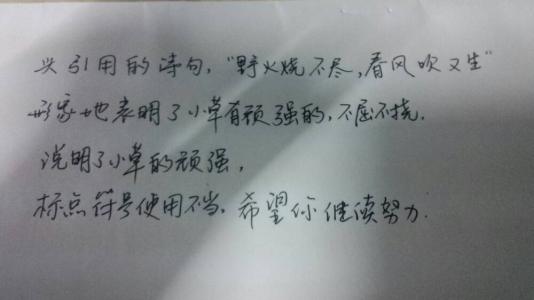 引用的诗句,“野火烧不尽,春风吹又生”
形象地表明了小草有顽强的,不屈不挠.
说明了小草的顽强,
标点符号使用不当。希望你继续努力.